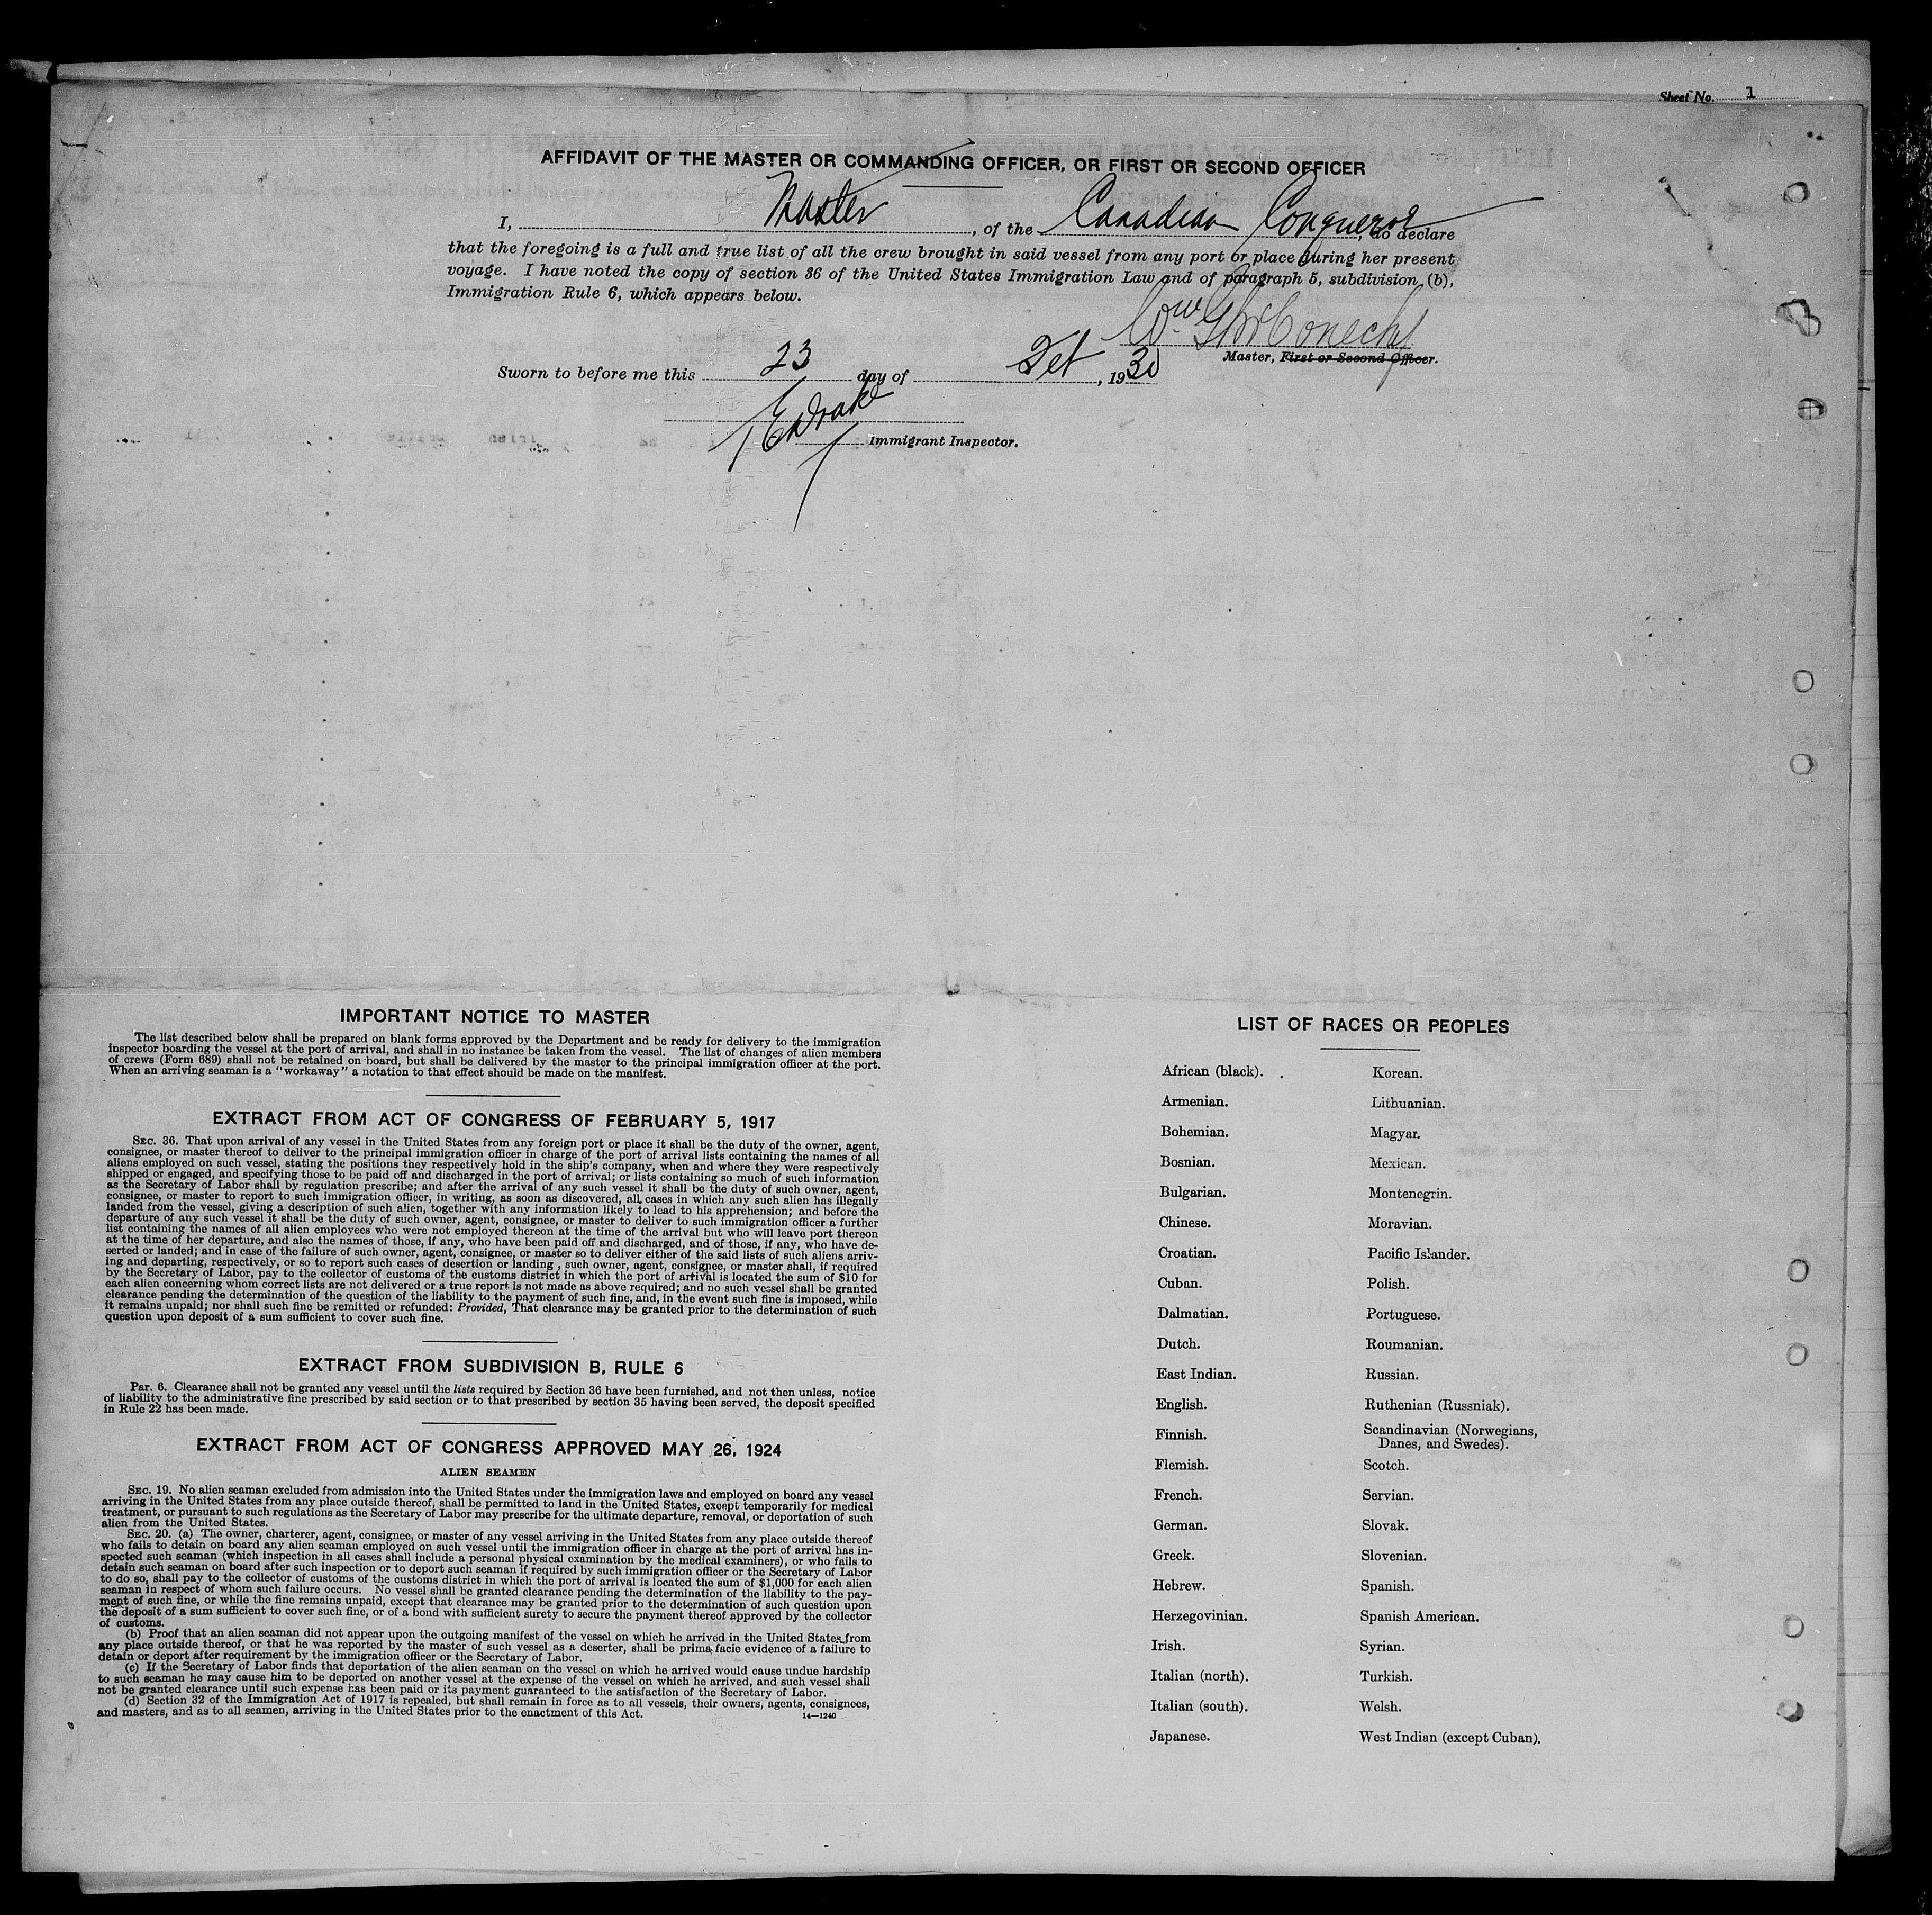 Sheet No. 1
AFFIDAVIT OF THE MASTER OR COMMANDING OFFICER, OR FIRST OR SECOND OFFICER
I, Master, of the Canadian Conqueror, do declare
that the foregoing is a full and true list of all the crew brought in said vessel from any port or place during her present
voyage. I have noted the copy of section 36 of the United States Immigration Law and of paragraph 5, subdivision (b),
Immigration Rule 6, which appears below.
Wm
Master, First or Second Officer.
Sworn to before me this 23 day of , 1930
Drake
Immigrant Inspector.
IMPORTANT NOTICE TO MASTER
The list described below shall be prepared on blank forms approved by the Department and be ready for delivery to the immigration
inspector boarding the vessel at the port of arrival, and shall in no instance be taken from the vessel. The list of changes of alien members
of crews (Form 689) shall not be retained on board, but shall be delivered by the master to the principal immigration officer at the port.
When an arriving seaman is a "workaway" a notation to that effect should be made on the manifest.
EXTRACT FROM ACT OF CONGRESS OF FEBRUARY 5, 1917
SEC. 36. That upon arrival of any vessel in the United States from any foreign port or place it shall be the duty of the owner, agent,
consignee, or master thereof to deliver to the principal immigration officer in charge of the port of arrival lists containing the names of all
aliens employed on such vessel, stating the positions they respectively hold in the ship's company, when and where they were respectively
shipped or engaged, and specifying those to be paid off and discharged in the port of arrival; or lists containing so much of such information
as the Secretary of Labor shall by regulation prescribe; and after the arrival of any such vessel it shall be the duty of such owner, agent,
consignee, or master to report to such immigration officer, in writing, as soon as discovered, all cases in which any such alien has illegally
landed from the vessel, giving a description of such alien, together with any information likely to lead to his apprehension; and before the
departure of any such vessel it shall be the duty of such owner, agent, consignee, or master to deliver to such immigration officer a further
list containing the names of all alien employees who were not employed thereon at the time of the arrival but who will leave port thereon
at the time of her departure, and also the names of those, if any, who have been paid off and discharged, and of those, if any, who have de-
serted or landed; and in case of the failure of such owner, agent, consignee, or master so to deliver either of the said lists of such aliens arriv-
ing and departing, respectively, or so to report such cases of desertion or landing, such owner, agent, consignee, or master shall, if required
by the Secretary of Labor, pay to the collector of customs of the customs district in which the port of arrival is located the sum of $10 for
each alien concerning whom correct lists are not delivered or a true report is not made as above required; and no such vessel shall be granted
clearance pending the determination of the question of the liability to the payment of such fine, and, in the event such fine is imposed, while
it remains unpaid; nor shall such fine be remitted or refunded: Provided, That clearance may be granted prior to the determination of such
question upon deposit of a sum sufficient to cover such fine.
EXTRACT FROM SUBDIVISION B, RULE 6
Par. 6. Clearance shall not be granted any vessel until the lists required by Section 36 have been furnished, and not then unless, notice
of liability to the administrative fine prescribed by said section or to that prescribed by section 35 having been served, the deposit specified
in Rule 22 has been made.
EXTRACT FROM ACT OF CONGRESS APPROVED MAY 26, 1924
ALIEN SEAMEN
SEC. 19. No alien seaman excluded from admission into the United States under the immigration laws and employed on board any vessel
arriving in the United States from any place outside thereof, shall be permitted to land in the United States, except temporarily for medical
treatment, or pursuant to such regulations as the Secretary of Labor may prescribe for the ultimate departure, removal, or deportation of such
alien from the United States.
SEC. 20. (a) The owner, charterer, agent, consignee, or master of any vessel arriving in the United States from any place outside thereof
who fails to detain on board any alien seaman employed on such vessel until the immigration officer in charge at the port of arrival has in-
spected such seaman (which inspection in all cases shall include a personal physical examination by the medical examiners), or who fails to
detain such seaman on board after such inspection or to deport such seaman if required by such immigration officer or the Secretary of Labor
to do so, shall pay to the collector of customs of the customs district in which the port of arrival is located the sum of $1,000 for each alien
seaman in respect of whom such failure occurs. No vessel shall be granted clearance pending the determination of the liability to the pay-
ment of such fine, or while the fine remains unpaid, except that clearance may be granted prior to the determination of such question upon
the deposit of a sum sufficient to cover such fine, or of a bond with sufficient surety to secure the payment thereof approved by the collector
of customs.
(b) Proof that an alien seaman did not appear upon the outgoing manifest of the vessel on which he arrived in the United States from
any place outside thereof, or that he was reported by the master of such vessel as a deserter, shall be prima facie evidence of a failure to
detain or deport after requirement by the immigration officer or the Secretary of Labor.
(c) If the Secretary of Labor finds that deportation of the alien seaman on the vessel on which he arrived would cause undue hardship
to such seaman he may cause him to be deported on another vessel at the expense of the vessel on which he arrived, and such vessel shall
not be granted clearance until such expense has been paid or its payment guaranteed to the satisfaction of the Secretary of Labor.
(d) Section 32 of the Immigration Act of 1917 is repealed, but shall remain in force as to all vessels, their owners, agents, consignees,
and masters, and as to all seamen, arriving in the United States prior to the enactment of this Act.
14—1240
LIST OF RACES OR PEOPLES
African (black).
Armenian.
Bohemian.
Bosnian.
Bulgarian.
Chinese.
Croatian.
Cuban.
Dalmatian.
Dutch.
East Indian.
English.
Finnish.
Flemish.
French.
German.
Greek.
Hebrew.
Herzegovinian.
Irish.
Italian (north).
Italian (south).
Japanese.
Korean.
Lithuanian.
Magyar.
Mexican.
Montenegrin.
Moravian.
Pacific Islander.
Polish.
Portuguese.
Roumanian.
Russian.
Ruthenian (Russniak).
Scandinavian (Norwegians,
Danes, and Swedes).
Scotch.
Servian.
Slovak.
Slovenian.
Spanish.
Spanish American.
Syrian.
Turkish.
Welsh.
West Indian (except Cuban).